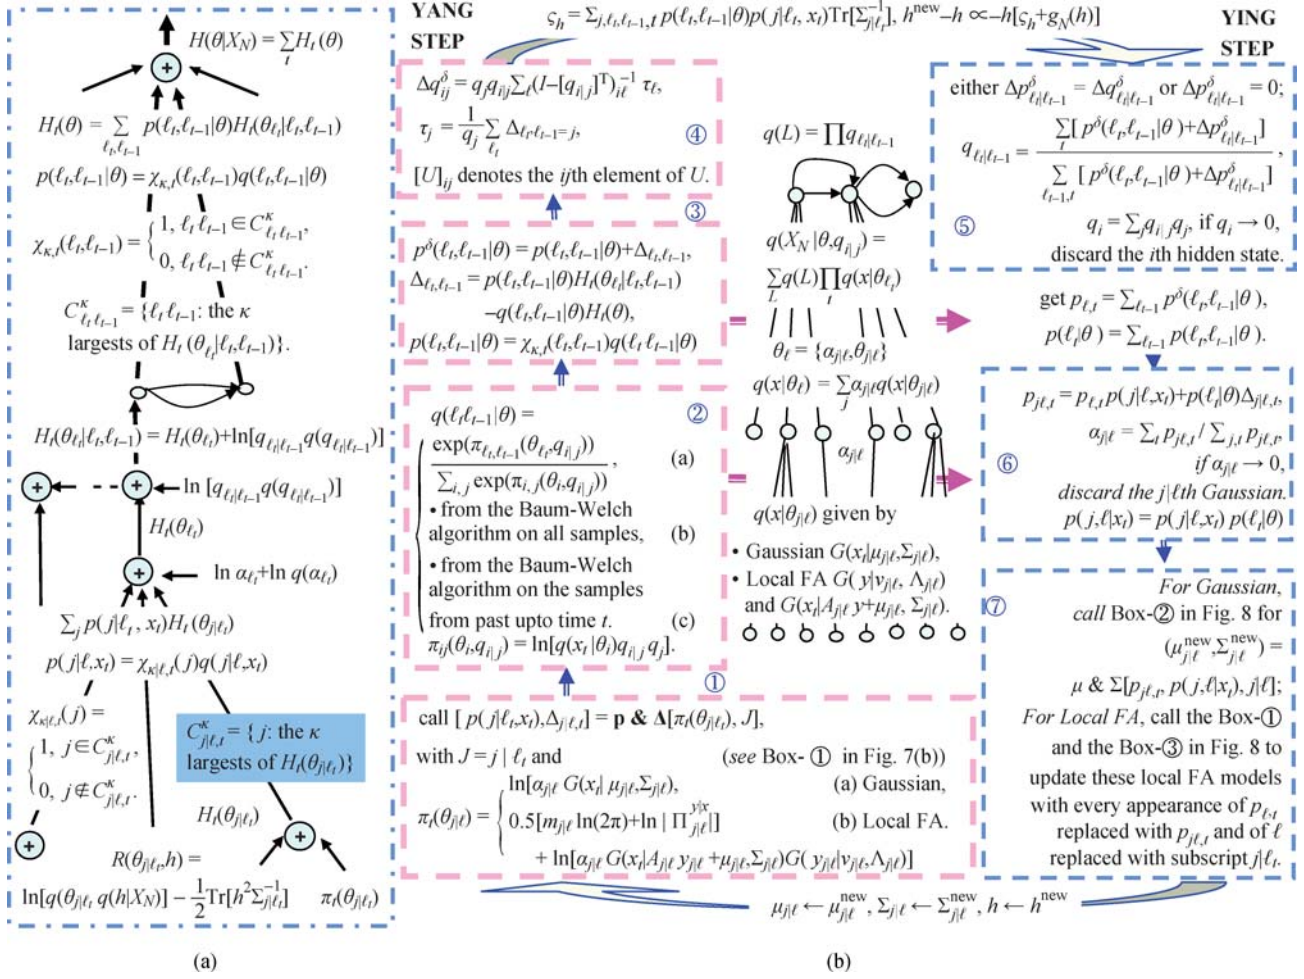 H(θ|X_N) = ∑_t H_t(θ)
H_t(θ) = ∑_{ℓ_t,ℓ_{t−1}} p(ℓ_t,ℓ_{t−1}|θ)H_t(θ_{ℓ_t}|ℓ_t,ℓ_{t−1})
p(ℓ_t,ℓ_{t−1}|θ) = χ_{κ,t}(ℓ_t,ℓ_{t−1})q(ℓ_t,ℓ_{t−1}|θ)
χ_{κ,t}(ℓ_t,ℓ_{t−1}) = { 1, ℓ_t ℓ_{t−1} ∈ C^κ_{ℓ_t ℓ_{t−1}},
0, ℓ_t ℓ_{t−1} ∉ C^κ_{ℓ_t ℓ_{t−1}}.
C^κ_{ℓ_t ℓ_{t−1}} = {ℓ_t ℓ_{t−1}: the κ
largests of H_t(θ_{ℓ_t}|ℓ_t,ℓ_{t−1})}.
H_t(θ_{ℓ_t}|ℓ_t,ℓ_{t−1}) = H_t(θ_{ℓ_t})+ln[q_{ℓ_t|ℓ_{t−1}}q(q_{ℓ_t|ℓ_{t−1}})]
ln [q_{ℓ_t|ℓ_{t−1}}q(q_{ℓ_t|ℓ_{t−1}})]
H_t(θ_{ℓ_t})
ln α_{ℓ_t}+ln q(α_{ℓ_t})
∑_j p(j|ℓ_t, x_t)H_t(θ_{j|ℓ_t})
p(j|ℓ,x_t) = χ_{κ|ℓ,t}(j)q(j|ℓ,x_t)
χ_{κ|ℓ,t}(j) =
{ 1, j∈C^κ_{j|ℓ,t},
0, j∉C^κ_{j|ℓ,t}.
C^κ_{j|ℓ,t} = { j: the κ
largests of H_t(θ_{j|ℓ_t})}
H_t(θ_{j|ℓ_t})
R(θ_{j|ℓ_t},h) =
ln[q(θ_{j|ℓ_t} q(h|X_N)] − 1/2 Tr[h²Σ^{−1}_{j|ℓ_t}]
π_t(θ_{j|ℓ_t})
(a)
YANG
STEP
ς_h = Σ_{j,ℓ_t,ℓ_{t−1},t} p(ℓ_t,ℓ_{t−1}|θ)p(j|ℓ_t, x_t)Tr[Σ^{−1}_{j|ℓ_t}], h^{new}−h ∝−h[ς_h+g_N(h)]
YING
STEP
Δq^δ_{ij} = q_j q_{i|j}∑_ℓ(I−[q_{i|j}]^T)^{−1}_{iℓ} τ_ℓ,
τ_j = 1/q_j ∑_{ℓ_t} Δ_{ℓ_t,ℓ_{t−1}=j},
④
[U]_{ij} denotes the ijth element of U.
③
p^δ(ℓ_t,ℓ_{t−1}|θ) = p(ℓ_t,ℓ_{t−1}|θ)+Δ_{ℓ_t,ℓ_{t−1}},
Δ_{ℓ_t,ℓ_{t−1}} = p(ℓ_t,ℓ_{t−1}|θ)H_t(θ_{ℓ_t}|ℓ_t,ℓ_{t−1})
−q(ℓ_t,ℓ_{t−1}|θ)H_t(θ),
p(ℓ_t,ℓ_{t−1}|θ) = χ_{κ,t}(ℓ_t,ℓ_{t−1})q(ℓ_t ℓ_{t−1}|θ)
②
q(ℓ_t ℓ_{t−1}|θ) =
exp(π_{ℓ_t,ℓ_{t−1}}(θ_{ℓ_t},q_{i|j})) / ∑_{i,j} exp(π_{i,j}(θ_i,q_{i|j})), (a)
• from the Baum-Welch
algorithm on all samples, (b)
• from the Baum-Welch
algorithm on the samples
from past upto time t. (c)
π_{ij}(θ_i,q_{i|j}) = ln[q(x_t|θ_i)q_{i|j} q_j].
①
call [ p(j|ℓ_t,x_t),Δ_{j|ℓ,t}] = p & Δ[π_t(θ_{j|ℓ_t}), J],
with J = j | ℓ_t and (see Box- ① in Fig. 7(b))
ln[α_{j|ℓ} G(x_t| μ_{j|ℓ},Σ_{j|ℓ}), (a) Gaussian,
π_t(θ_{j|ℓ}) = { 0.5[m_{j|ℓ} ln(2π)+ln | Π^{y|x}_{j|ℓ}|] (b) Local FA.
+ ln[α_{j|ℓ} G(x_t|A_{j|ℓ} y_{j|ℓ}+μ_{j|ℓ},Σ_{j|ℓ})G( y_{j|ℓ}|ν_{j|ℓ},Λ_{j|ℓ})]
q(L) = ∏ q_{ℓ_t|ℓ_{t−1}}
q(X_N|θ,q_{i|j}) =
∑_L q(L)∏_t q(x|θ_{ℓ_t})
θ_ℓ = {α_{j|ℓ},θ_{j|ℓ}}
q(x|θ_ℓ) = ∑_j α_{j|ℓ}q(x|θ_{j|ℓ})
α_{j|ℓ}
q(x|θ_{j|ℓ}) given by
• Gaussian G(x_t|μ_{j|ℓ},Σ_{j|ℓ}),
• Local FA G( y|ν_{j|ℓ}, Λ_{j|ℓ})
and G(x_t|A_{j|ℓ} y+μ_{j|ℓ}, Σ_{j|ℓ}).
either Δp^δ_{ℓ_t|ℓ_{t−1}} = Δq^δ_{ℓ_t|ℓ_{t−1}} or Δp^δ_{ℓ_t|ℓ_{t−1}} = 0;
q_{ℓ_t|ℓ_{t−1}} = ∑_t[ p^δ(ℓ_t,ℓ_{t−1}|θ)+Δp^δ_{ℓ_t|ℓ_{t−1}}] / ∑_{ℓ_{t−1},t}[ p^δ(ℓ_t,ℓ_{t−1}|θ)+Δp^δ_{ℓ_t|ℓ_{t−1}}],
⑤
q_i = ∑_j q_{i|j} q_j, if q_i → 0,
discard the ith hidden state.
get p_{ℓ,t} = ∑_{ℓ_{t−1}} p^δ(ℓ_t,ℓ_{t−1}|θ),
p(ℓ_t|θ) = ∑_{ℓ_{t−1}} p(ℓ_t,ℓ_{t−1}|θ).
p_{jℓ,t} = p_{ℓ,t} p(j|ℓ,x_t)+p(ℓ_t|θ)Δ_{j|ℓ,t},
α_{j|ℓ} = ∑_t p_{jℓ,t} / ∑_{j,t} p_{jℓ,t},
⑥
if α_{j|ℓ} → 0,
discard the j|ℓth Gaussian.
p(j,ℓ|x_t) = p(j|ℓ,x_t) p(ℓ_t|θ)
⑦
For Gaussian,
call Box-② in Fig. 8 for
(μ^{new}_{j|ℓ},Σ^{new}_{j|ℓ}) =
μ & Σ[p_{jℓ,t}, p(j,ℓ|x_t), j|ℓ];
For Local FA, call the Box-①
and the Box-③ in Fig. 8 to
update these local FA models
with every appearance of p_{ℓ,t}
replaced with p_{jℓ,t} and of ℓ
replaced with subscript j|ℓ_t.
μ_{j|ℓ} ← μ^{new}_{j|ℓ}, Σ_{j|ℓ} ← Σ^{new}_{j|ℓ}, h ← h^{new}
(b)